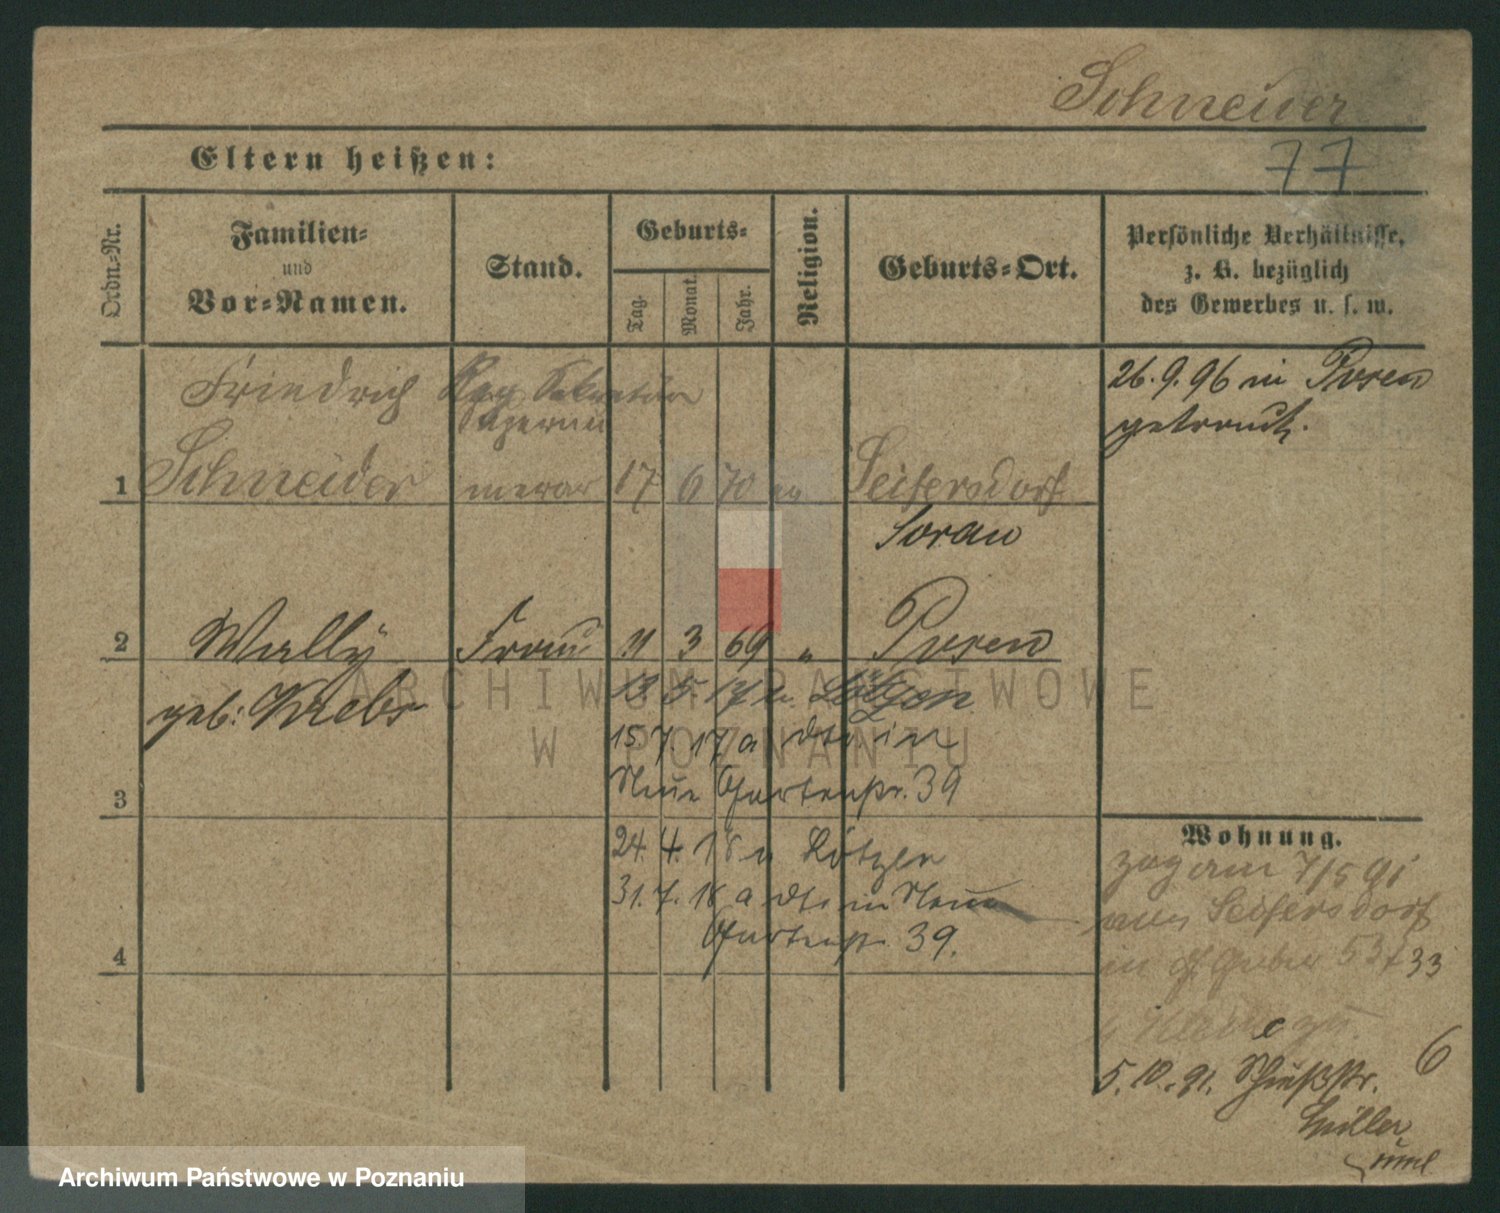 Schneider
Eltern heißen:
77
Ordn.-Nr.
Familien-
und
Vor-Namen.
Stand.
Geburts-
Tag.
Monat.
Jahr.
Religion.
Geburts-Ort.
Persönliche Verhältnisse,
z. B. bezüglich
des Gewerbes u. s. w.
Friedrich Reg. Sekretär
Supernu
26.9.96 in Posen
getraut.
1 Schneider merar 17 6 70 ev Seifersdorf
Sorau
2 Wally Frau 11 3 69 " Posen
geb: Krebs
ARCHIWUM PAŃSTWOWE
W POZNANIU
13. 5. 17 n. Lötzen
15. 7. 17 a dto in
Neue Gartenstr. 39
3
Wohnung.
24. 4. 18 n Lötzen
zog am 7/5 91
31. 7. 18 a dto in Neue
aus Seifersdorf
Gartenstr. 39.
4
in Gr Gerber 53 33
5.10.91. Schießstr. 6
Müller
Archiwum Państwowe w Poznaniu